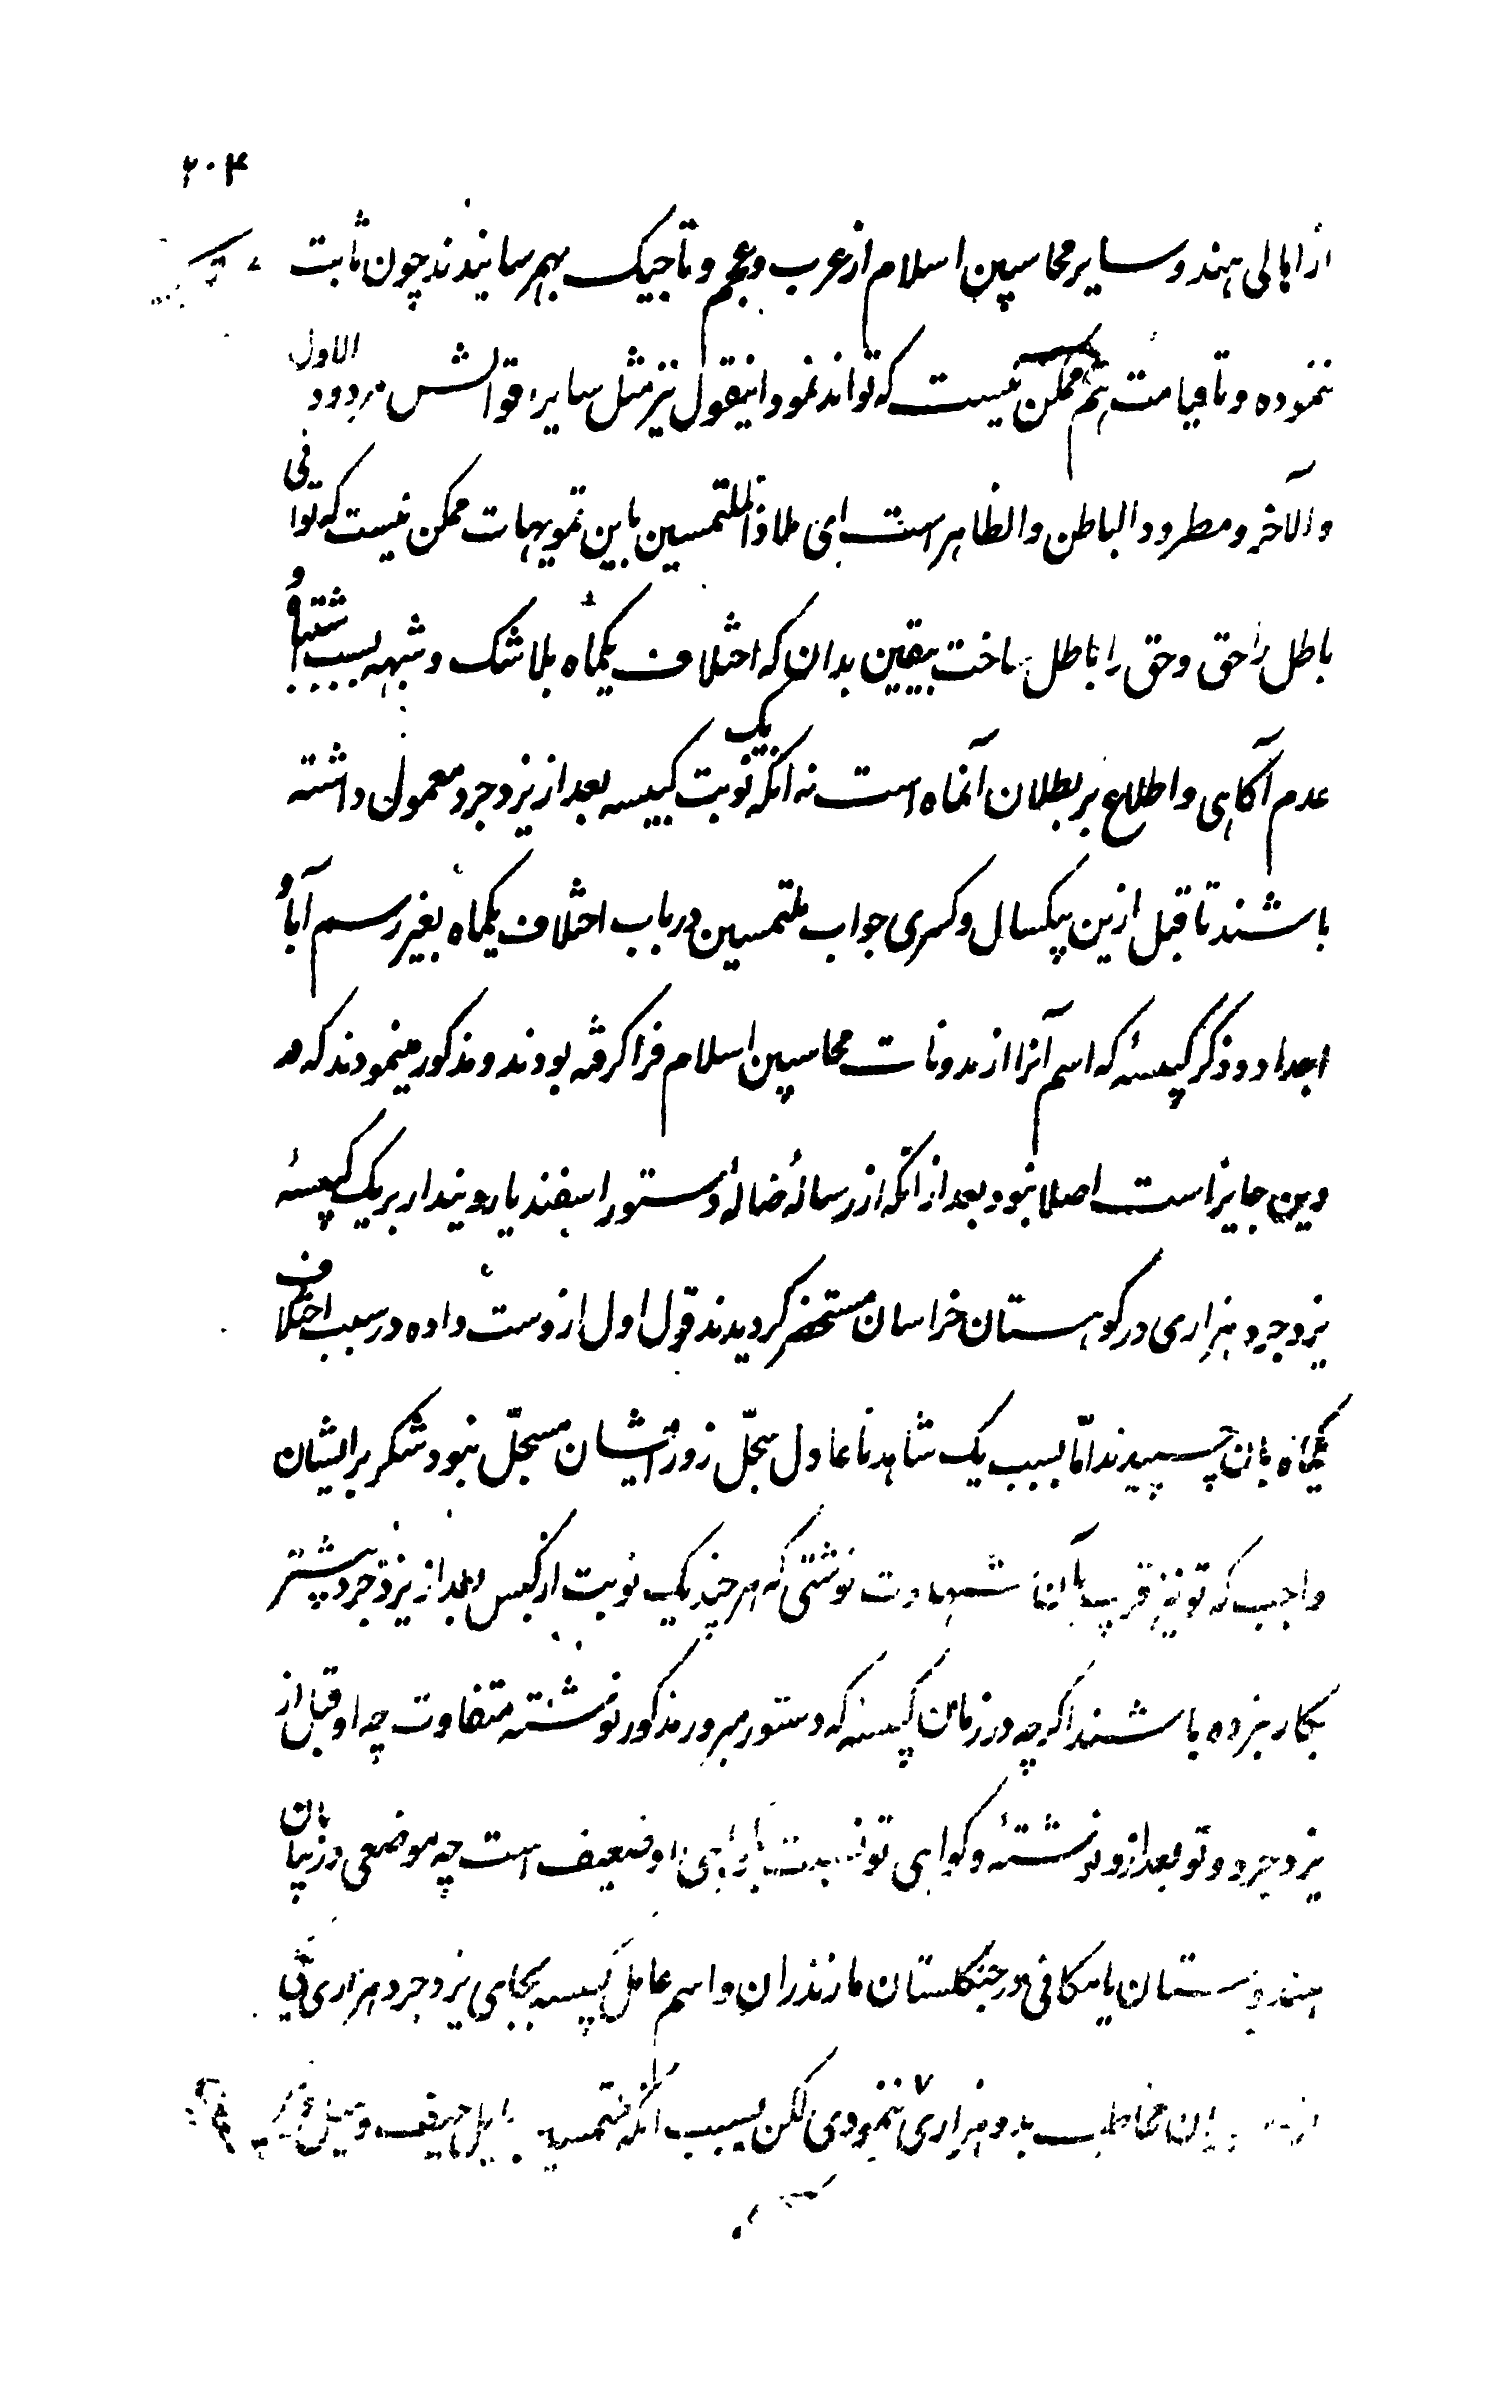 ۲۰۴
از اهالی هند و سایر محاسبین اسلام از عرب و عجم و تاجیک بهم رسانیدند چون ثابت
ننموده و تا قیامت هم ممکن نیست که تواند نمود اینقول نیز مثل سایر اقوالش مردود الاول
والآخر و مطرود الباطن والظاهر است ای ملاذ الملتمسین باین تمویهات ممکن نیست که توانی
باطل را حق و حق را باطل ساخت بیقین بدان که اختلاف یکماه بلا شک و شبهه بسبب اشتباه و
عدم آکاهی و اطلاع بر بطلان آنماه است نه انکه یک نوبت کبیسه بعد از یزدجرد معمول داشته
باشند تا قبل ازین یکسال و کسری جواب ملتمسین در باب اختلاف یکماه بغیر رسم آبا و
اجداد و ذکر کپیسهٔ که اسم آنرا از مدونات محاسبین اسلام فرا کرفته بودند و مذکور مینمودند که در
دین جایز است اصلا نبود بعد از انکه از رسالهٔ ضالهٔ دستور اسفندیار ویندار بر یک کپیسهٔ
یزدجرد هزاری در کوهستان خراسان مستحضر کردیدند قول اول از دست داده در سبب اختلاف
یکماه بان چسپیدند امّا بسبب یک شاهد نا عادل سجلّ زور ایشان مسجلّ نبود شکر بر ایشان
واجب که تو نیز قریب بآن شهادت نوشتی که هر چند یک نوبت از کبس بعد از یزدجرد پیشتر
بکار نبرده باشند اکرچه در زمان کپیسه که دستور مبرور مذکور نوشته متفاوت چه او قبل از
یزدجرد و تو بعد ازو نوشتهٔ و کواهی تو نسبت او ضعیف است چه موضعی در بیابان
هندوستان یا مکانی در جنکلستان مازندران و اسم عامل کپیسه بجای یزدجرد هزاری
مخاطب بدو هزاری ننمودی لکن بسبب انکه